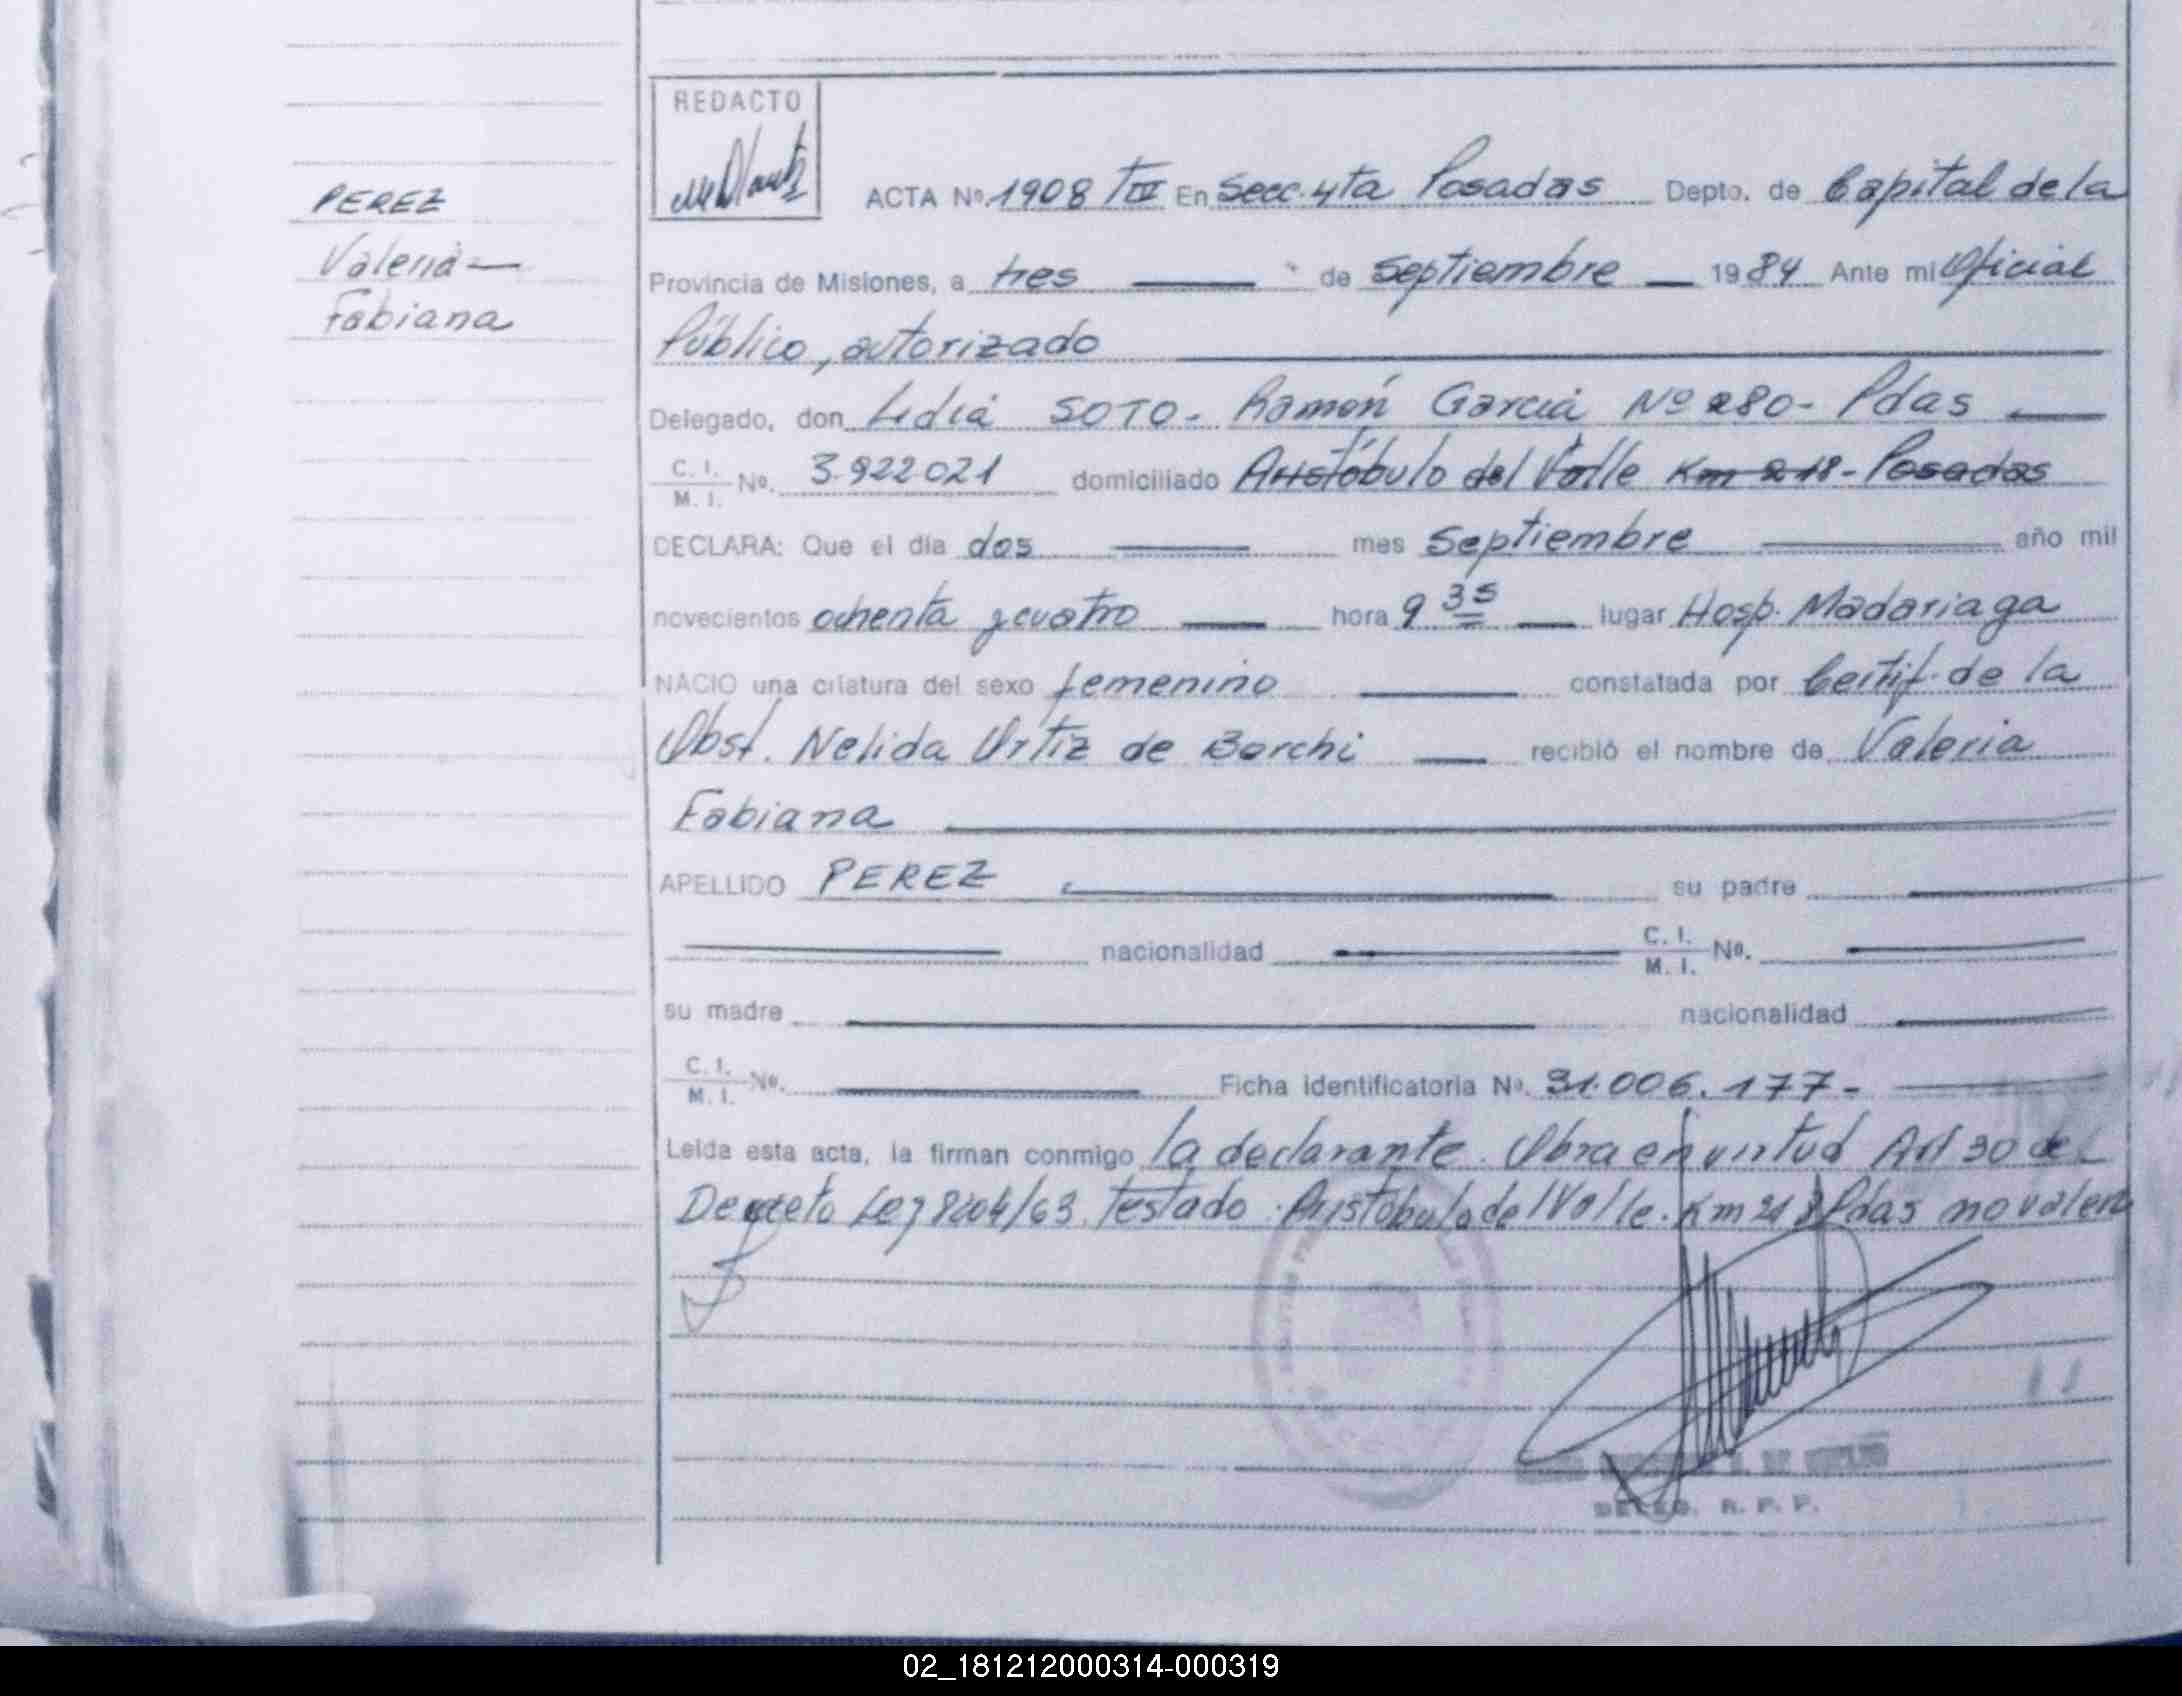 REDACTO
ACTA Nº 1908 TIII En Secc. 4ta Posadas Depto. de Capital de la
PEREZ
Valeria
Fabiana
Provincia de Misiones, a tres de Septiembre 1984 Ante mi Oficial
Público, autorizado
Delegado, don Lidia SOTO - Ramón García Nº 280 - Pdas
C. I. M. I. Nº. 3.922021 domiciliado Aristóbulo del Valle Km 218 - Posadas
DECLARA: Que el día dos mes Septiembre año mil
novecientos ochenta y cuatro hora 9 35 lugar Hosp. Madariaga
NACIO una criatura del sexo femenino constatada por Certif. de la
Obst. Nelida Ortiz de Borchi recibió el nombre de Valeria
Fabiana
APELLIDO PEREZ su padre
nacionalidad C. I. M. I. Nº.
su madre nacionalidad
C. I. M. I. Nº. Ficha identificatoria Nº. 31.006.177-
Leída esta acta, la firman conmigo la declarante. Obra en virtud Art 30 del
Decreto Ley 8204/63. Testado. Aristobulo del Valle. Km 218 Pdas no valen
DELEG. R. P. P.
02_181212000314-000319